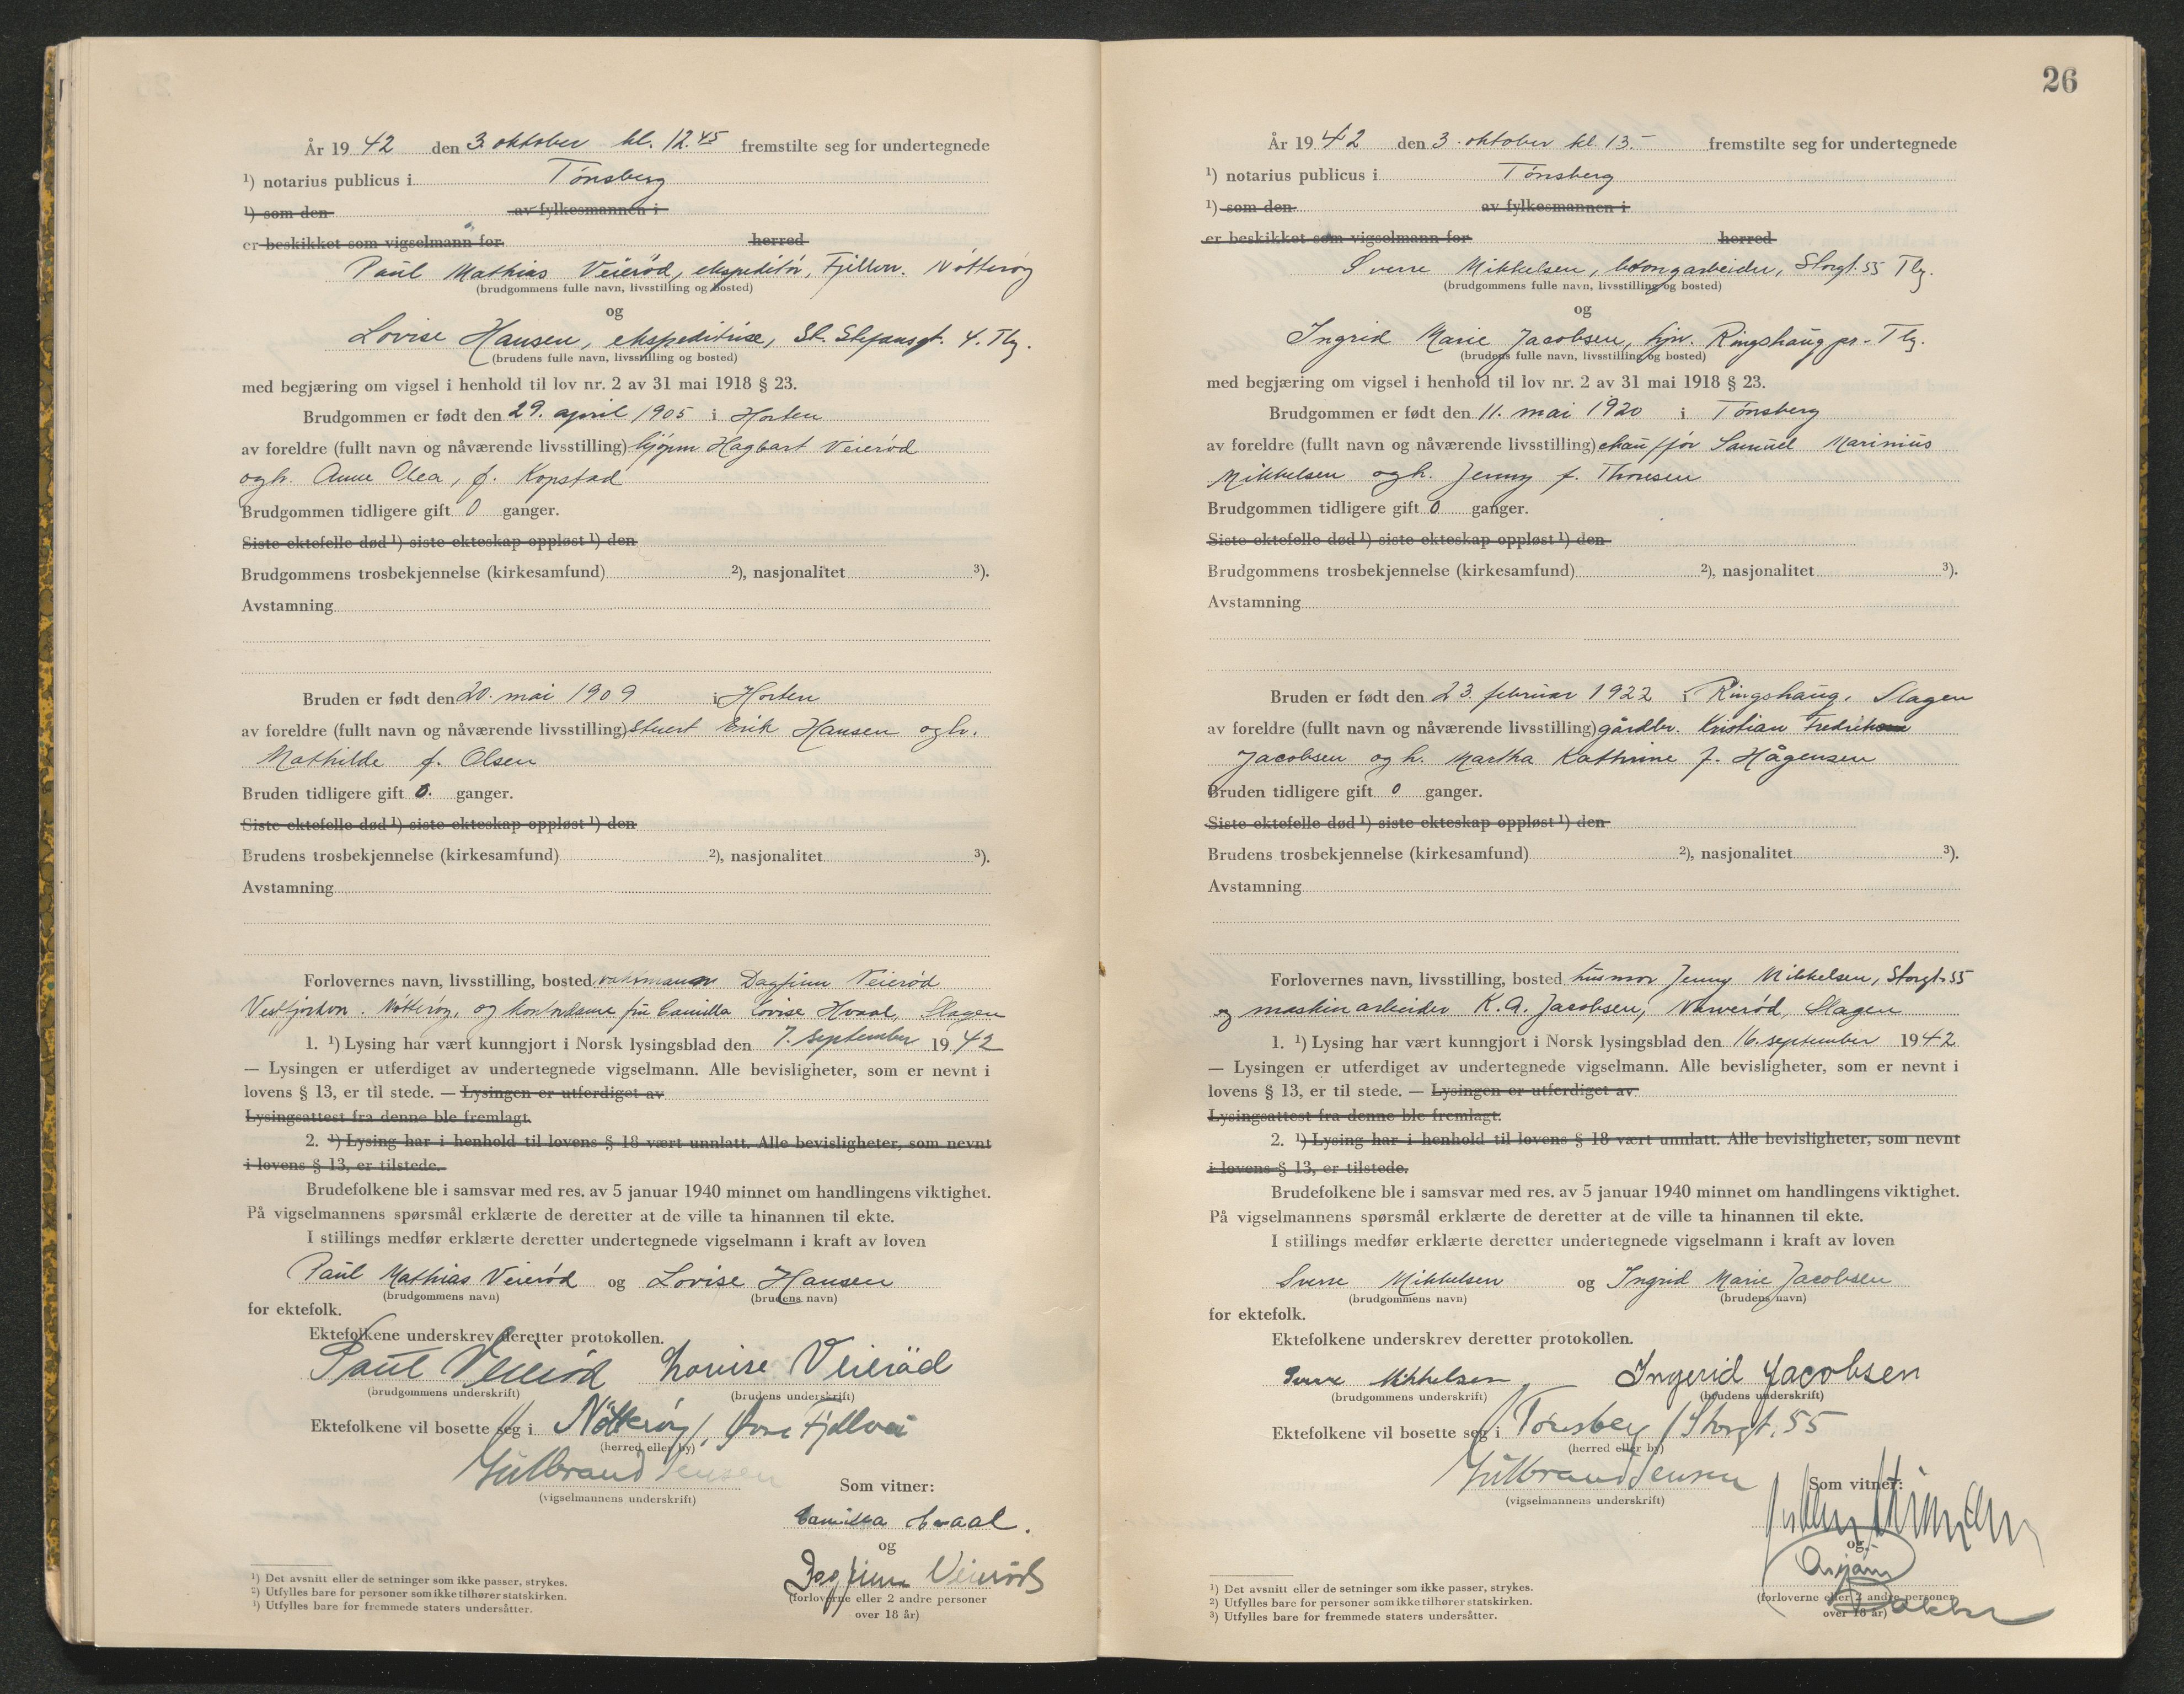 År 19 42 den 3. oktober kl. 12.45 fremstilte seg for undertegnede
1) notarius publicus i Tønsberg
1) som den av fylkesmannen i
er beskikket som vigselmann for herred
Paul Mathias Veierød, ekspeditør, Fjellvn. Nøtterøy
(brudgommens fulle navn, livsstilling og bosted)
og
Lovise Hansen, ekspeditrise, St. Stefansgt. 4. Tbg.
(brudens fulle navn, livsstilling og bosted)
med begjæring om vigsel i henhold til lov nr. 2 av 31 mai 1918 § 23.
Brudgommen er født den 29. april 1905 i Horten
av foreldre (fullt navn og nåværende livsstilling) Hagbart Veierød
og h. Anne Olea, f. Kopstad
Brudgommen tidligere gift 0 ganger.
Siste ektefelle død 1) siste ekteskap oppløst 1) den
Brudgommens trosbekjennelse (kirkesamfund) 2), nasjonalitet 3).
Avstamning
Bruden er født den 20. mai 1909 i Horten
av foreldre (fullt navn og nåværende livsstilling) stuert Erik Hansen og h.
Mathilde f. Olsen
Bruden tidligere gift 0. ganger.
Siste ektefelle død 1) siste ekteskap oppløst 1) den
Brudens trosbekjennelse (kirkesamfund) 2), nasjonalitet 3).
Avstamning
Forlovernes navn, livsstilling, bosted vaktmann Dagfinn Veierød
Vestfjordvn. Nøtterøy, og kontordame frk Camilla Lovise Hvaal, Slagen
1. 1) Lysing har vært kunngjort i Norsk lysingsblad den 7. september 19 42
— Lysingen er utferdiget av undertegnede vigselmann. Alle bevisligheter, som er nevnt i
lovens § 13, er til stede. — Lysingen er utferdiget av
Lysingsattest fra denne ble fremlagt.
2. 1) Lysing har i henhold til lovens § 18 vært unnlatt. Alle bevisligheter, som nevnt
i lovens § 13, er tilstede.
Brudefolkene ble i samsvar med res. av 5 januar 1940 minnet om handlingens viktighet.
På vigselmannens spørsmål erklærte de deretter at de ville ta hinannen til ekte.
I stillings medfør erklærte deretter undertegnede vigselmann i kraft av loven
Paul Mathias Veierød og Lovise Hansen
(brudgommens navn) (brudens navn)
for ektefolk.
Ektefolkene underskrev deretter protokollen.
Paul Veierød Lovise Veieröd
(brudgommens underskrift) (brudens underskrift)
Ektefolkene vil bosette seg i Nøtterøy, Øvre Fjellvei
(herred eller by)
Gulbrand Jensen
(vigselmannens underskrift)
Som vitner:
Camilla Hvaal.
og
Dagfinn Veierød
(forloverne eller 2 andre personer
over 18 år)
1) Det avsnitt eller de setninger som ikke passer, strykes.
2) Utfylles bare for personer som ikke tilhører statskirken.
3) Utfylles bare for fremmede staters undersåtter.
26
År 19 42 den 3. oktober kl. 13.- fremstilte seg for undertegnede
1) notarius publicus i Tønsberg
1) som den av fylkesmannen i
er beskikket som vigselmann for herred
Sverre Mikkelsen, betongarbeider, Storgt. 55 Tbg.
(brudgommens fulle navn, livsstilling og bosted)
og
Ingrid Marie Jacobsen, hjv. Ringshaug pr. Tbg.
(brudens fulle navn, livsstilling og bosted)
med begjæring om vigsel i henhold til lov nr. 2 av 31 mai 1918 § 23.
Brudgommen er født den 11. mai 1920 i Tønsberg
av foreldre (fullt navn og nåværende livsstilling) chauffør Samuel Marinius
Mikkelsen og h. Jenny f. Thoresen
Brudgommen tidligere gift 0 ganger.
Siste ektefelle død 1) siste ekteskap oppløst 1) den
Brudgommens trosbekjennelse (kirkesamfund) 2), nasjonalitet 3).
Avstamning
Bruden er født den 23. februar 1922 i Ringshaug, Slagen
av foreldre (fullt navn og nåværende livsstilling) gårdbr. Kristian
Jacobsen og h. Martha Kathrine f. Hågensen
Bruden tidligere gift 0 ganger.
Siste ektefelle død 1) siste ekteskap oppløst 1) den
Brudens trosbekjennelse (kirkesamfund) 2), nasjonalitet 3).
Avstamning
Forlovernes navn, livsstilling, bosted husmor Jenny Mikkelsen, Storgt. 55
og maskinarbeider K. A. Jacobsen, Varverød, Slagen
1. 1) Lysing har vært kunngjort i Norsk lysingsblad den 16. september 19 42
— Lysingen er utferdiget av undertegnede vigselmann. Alle bevisligheter, som er nevnt i
lovens § 13, er til stede. — Lysingen er utferdiget av
Lysingsattest fra denne ble fremlagt.
2. 1) Lysing har i henhold til lovens § 18 vært unnlatt. Alle bevisligheter, som nevnt
i lovens § 13, er tilstede.
Brudefolkene ble i samsvar med res. av 5 januar 1940 minnet om handlingens viktighet.
På vigselmannens spørsmål erklærte de deretter at de ville ta hinannen til ekte.
I stillings medfør erklærte deretter undertegnede vigselmann i kraft av loven
Sverre Mikkelsen og Ingrid Marie Jacobsen
(brudgommens navn) (brudens navn)
for ektefolk.
Ektefolkene underskrev deretter protokollen.
Sverre Mikkelsen Ingerid Jacobsen
(brudgommens underskrift) (brudens underskrift)
Ektefolkene vil bosette seg i Tønsberg / Storgt. 55
(herred eller by)
Gulbrand Jensen
(vigselmannens underskrift)
Som vitner:
og
(forloverne eller 2 andre personer
over 18 år)
1) Det avsnitt eller de setninger som ikke passer, strykes.
2) Utfylles bare for personer som ikke tilhører statskirken.
3) Utfylles bare for fremmede staters undersåtter.